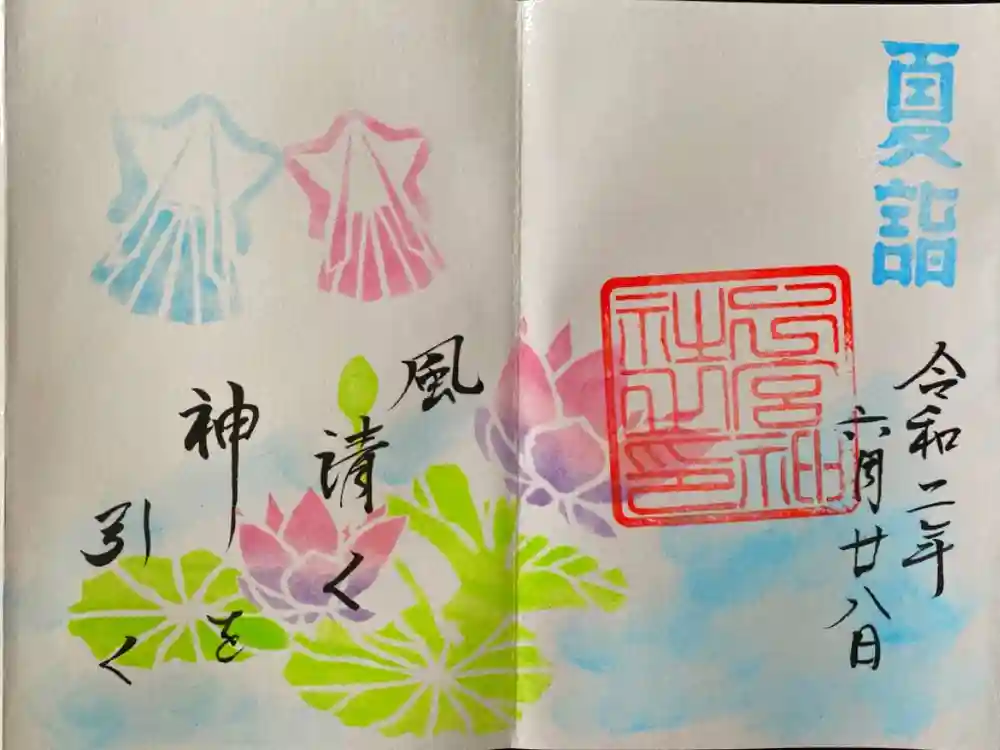 夏詣
令和二年
六月廿八日
宮神
社之印
風請く
神を
引く